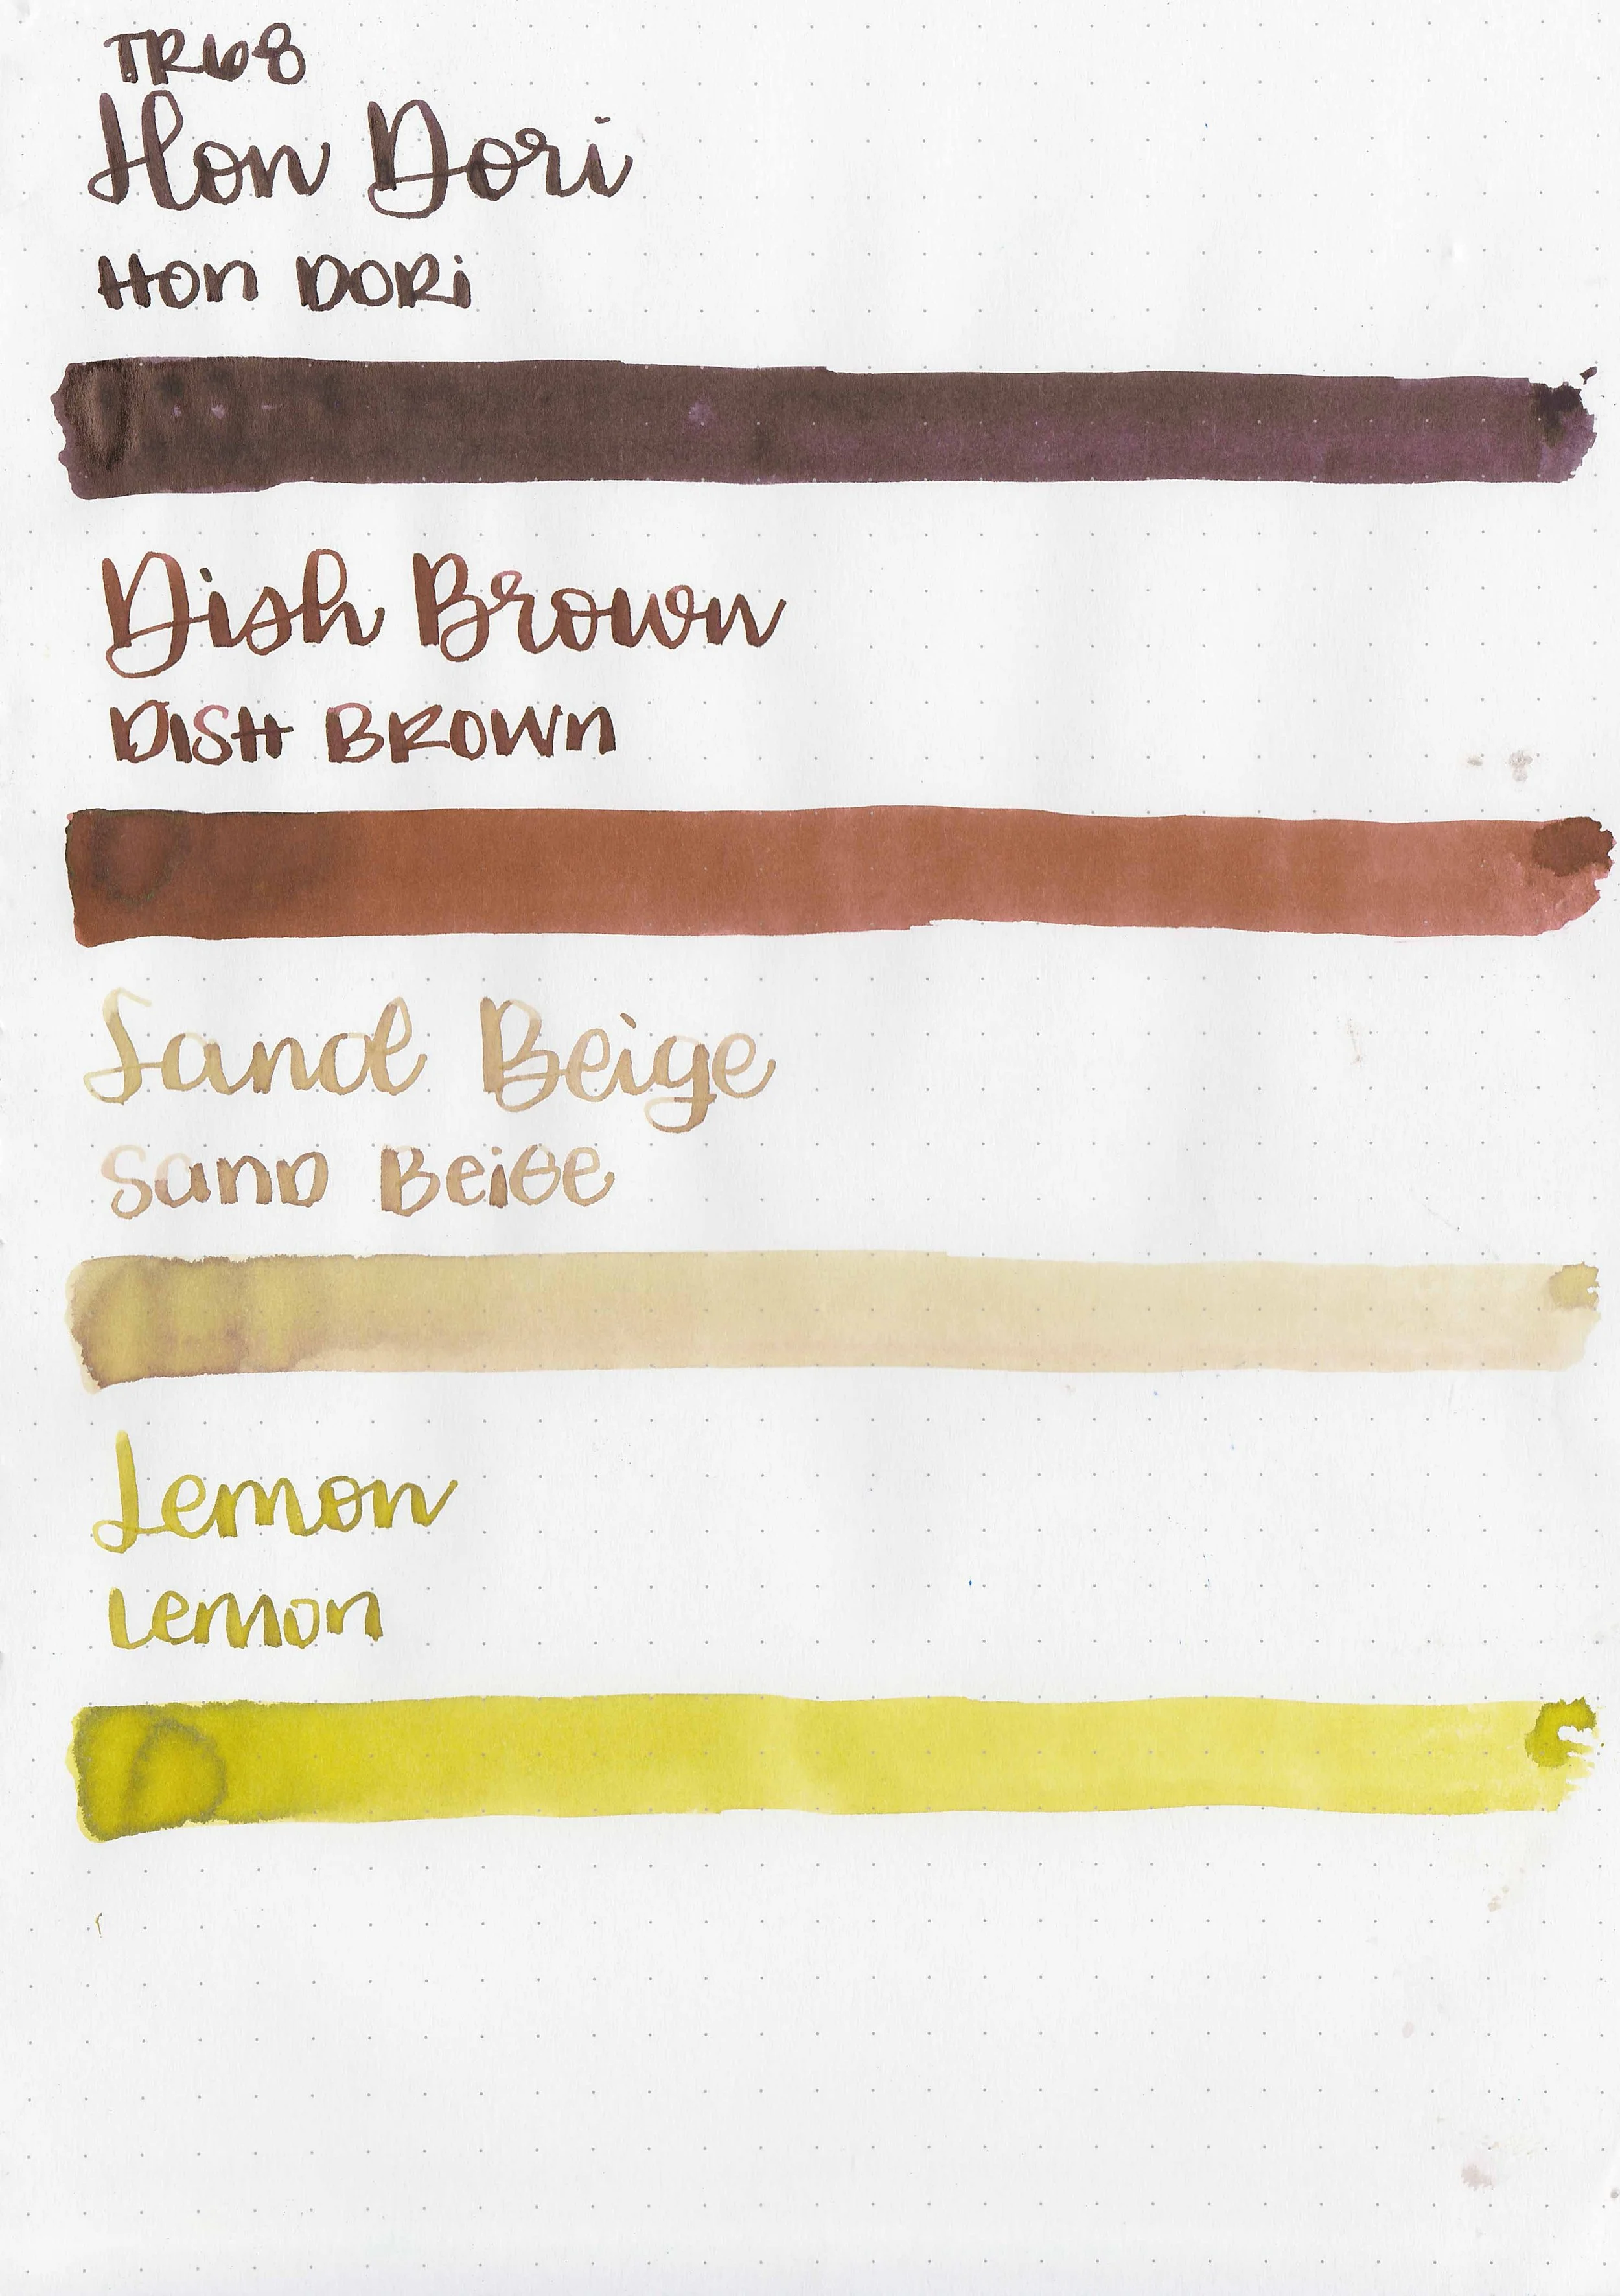 TR68
Hon Dori
Hon DORi
Dish Brown
DISH BROWN
Sand Beige
Sand Beige
Lemon
Lemon